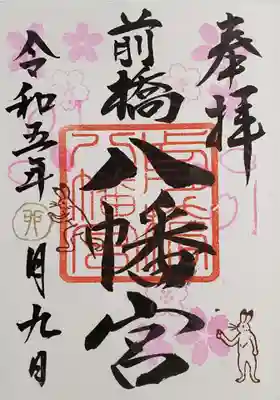 奉拝
前橋
八幡宮
令和五年
卯月九日